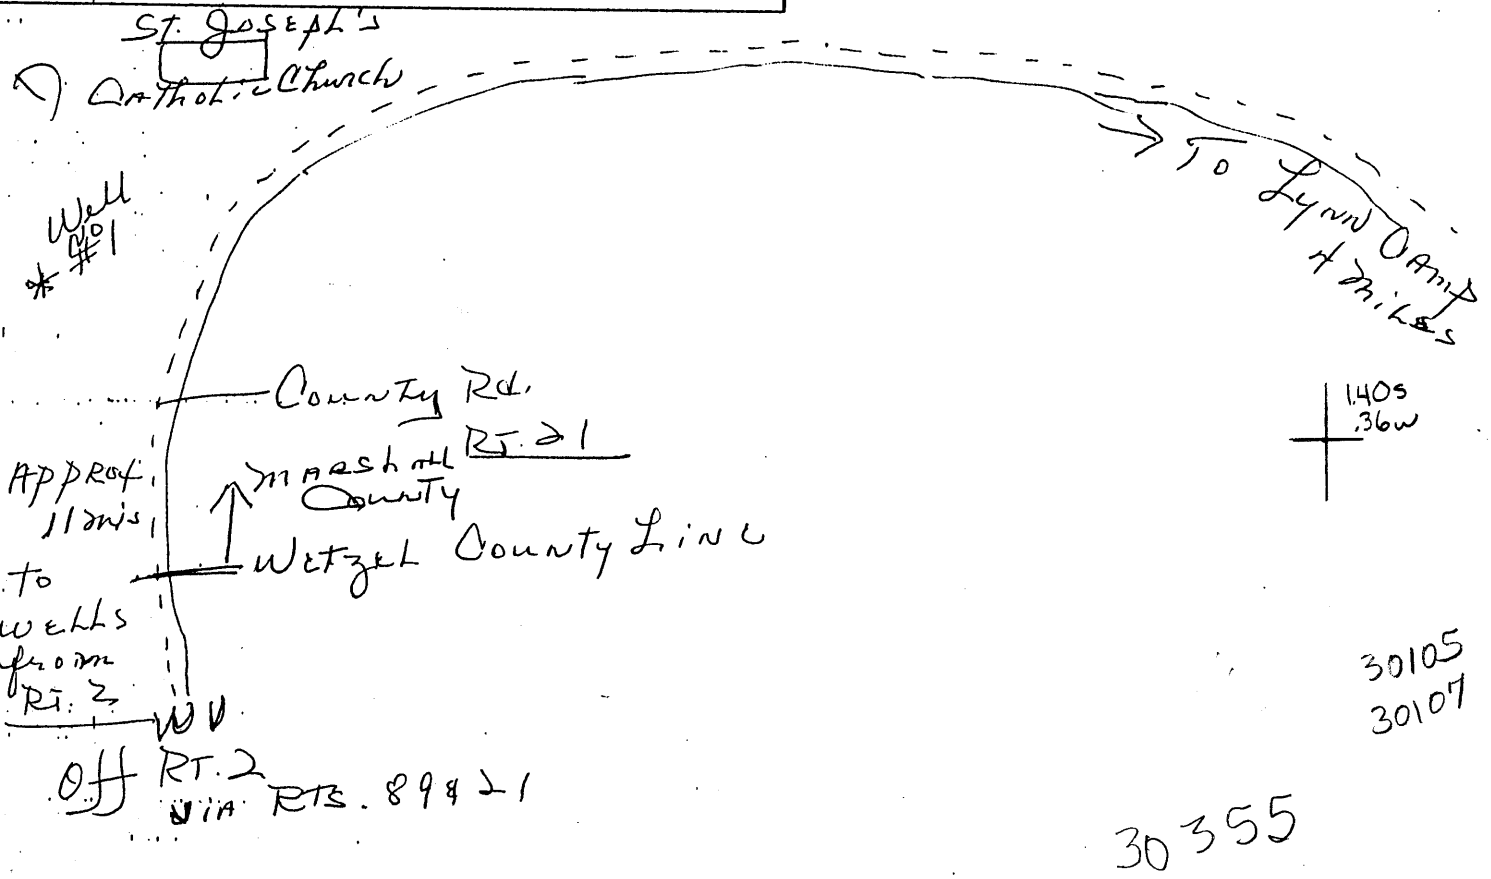 St. Joseph's
Catholic Church
Well
#1
*
To Lynn Camp
4 miles
County Rd.
RT. 21
1.40s
.36w
Approx.
11 mis
to
wells
from
RT. 2
Marshall
County
Wetzel County Line
WV
Off RT. 2
via RTS. 89 & 21
30105
30107
30355